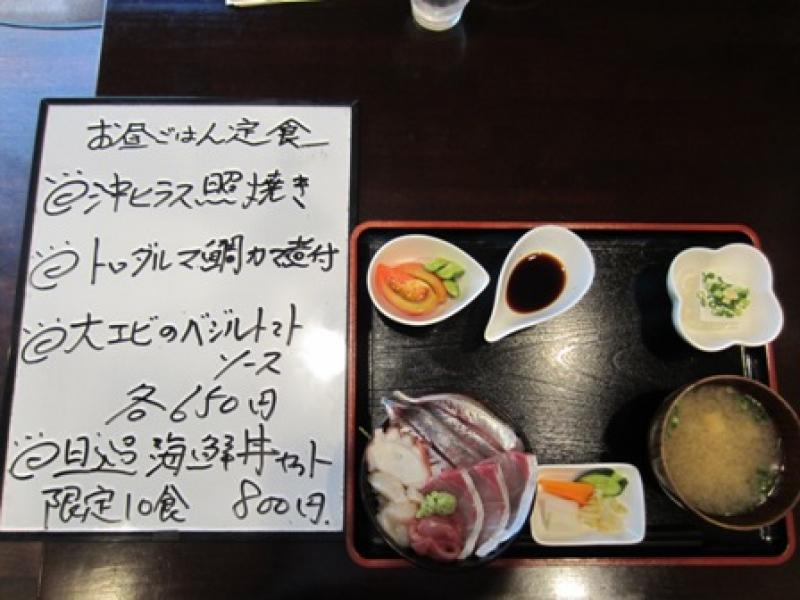 お昼ごはん定食
@沖ヒラス照焼き
@トロダルマ鯛カマ煮付
@大エビのバジルトマト
ソース
各650円
@日込み海鮮丼セット
限定10食 800円